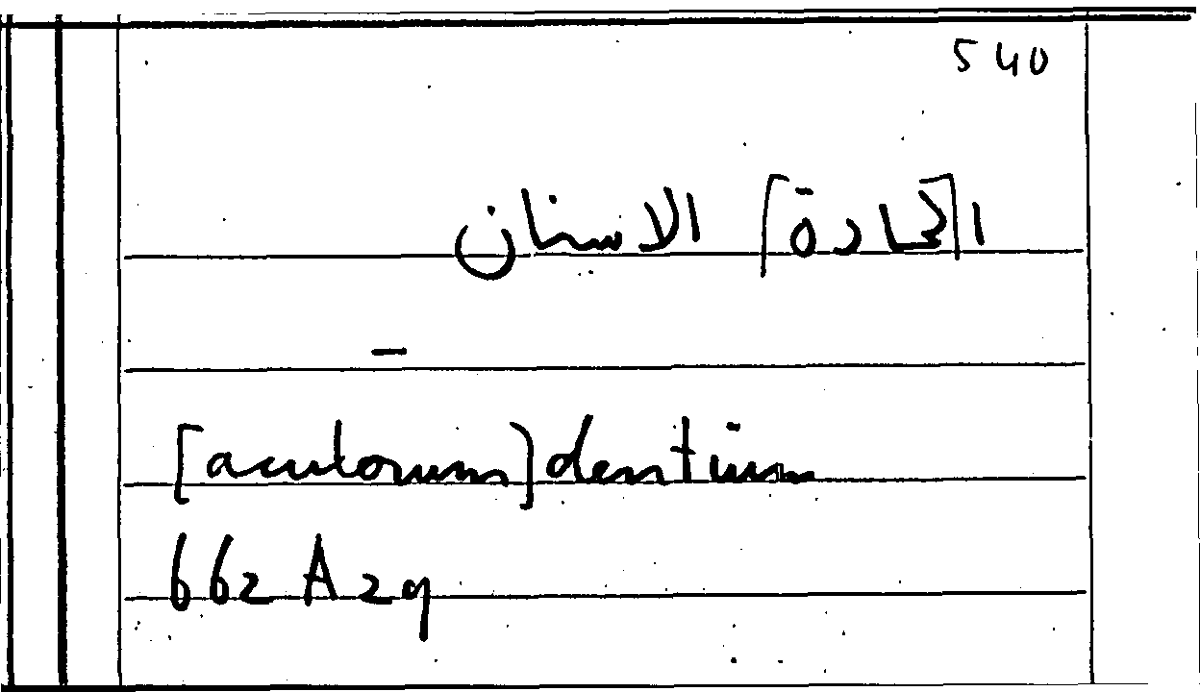 540
[الحادة] الاسنان
–
[acutorum] dentium
662 A 29